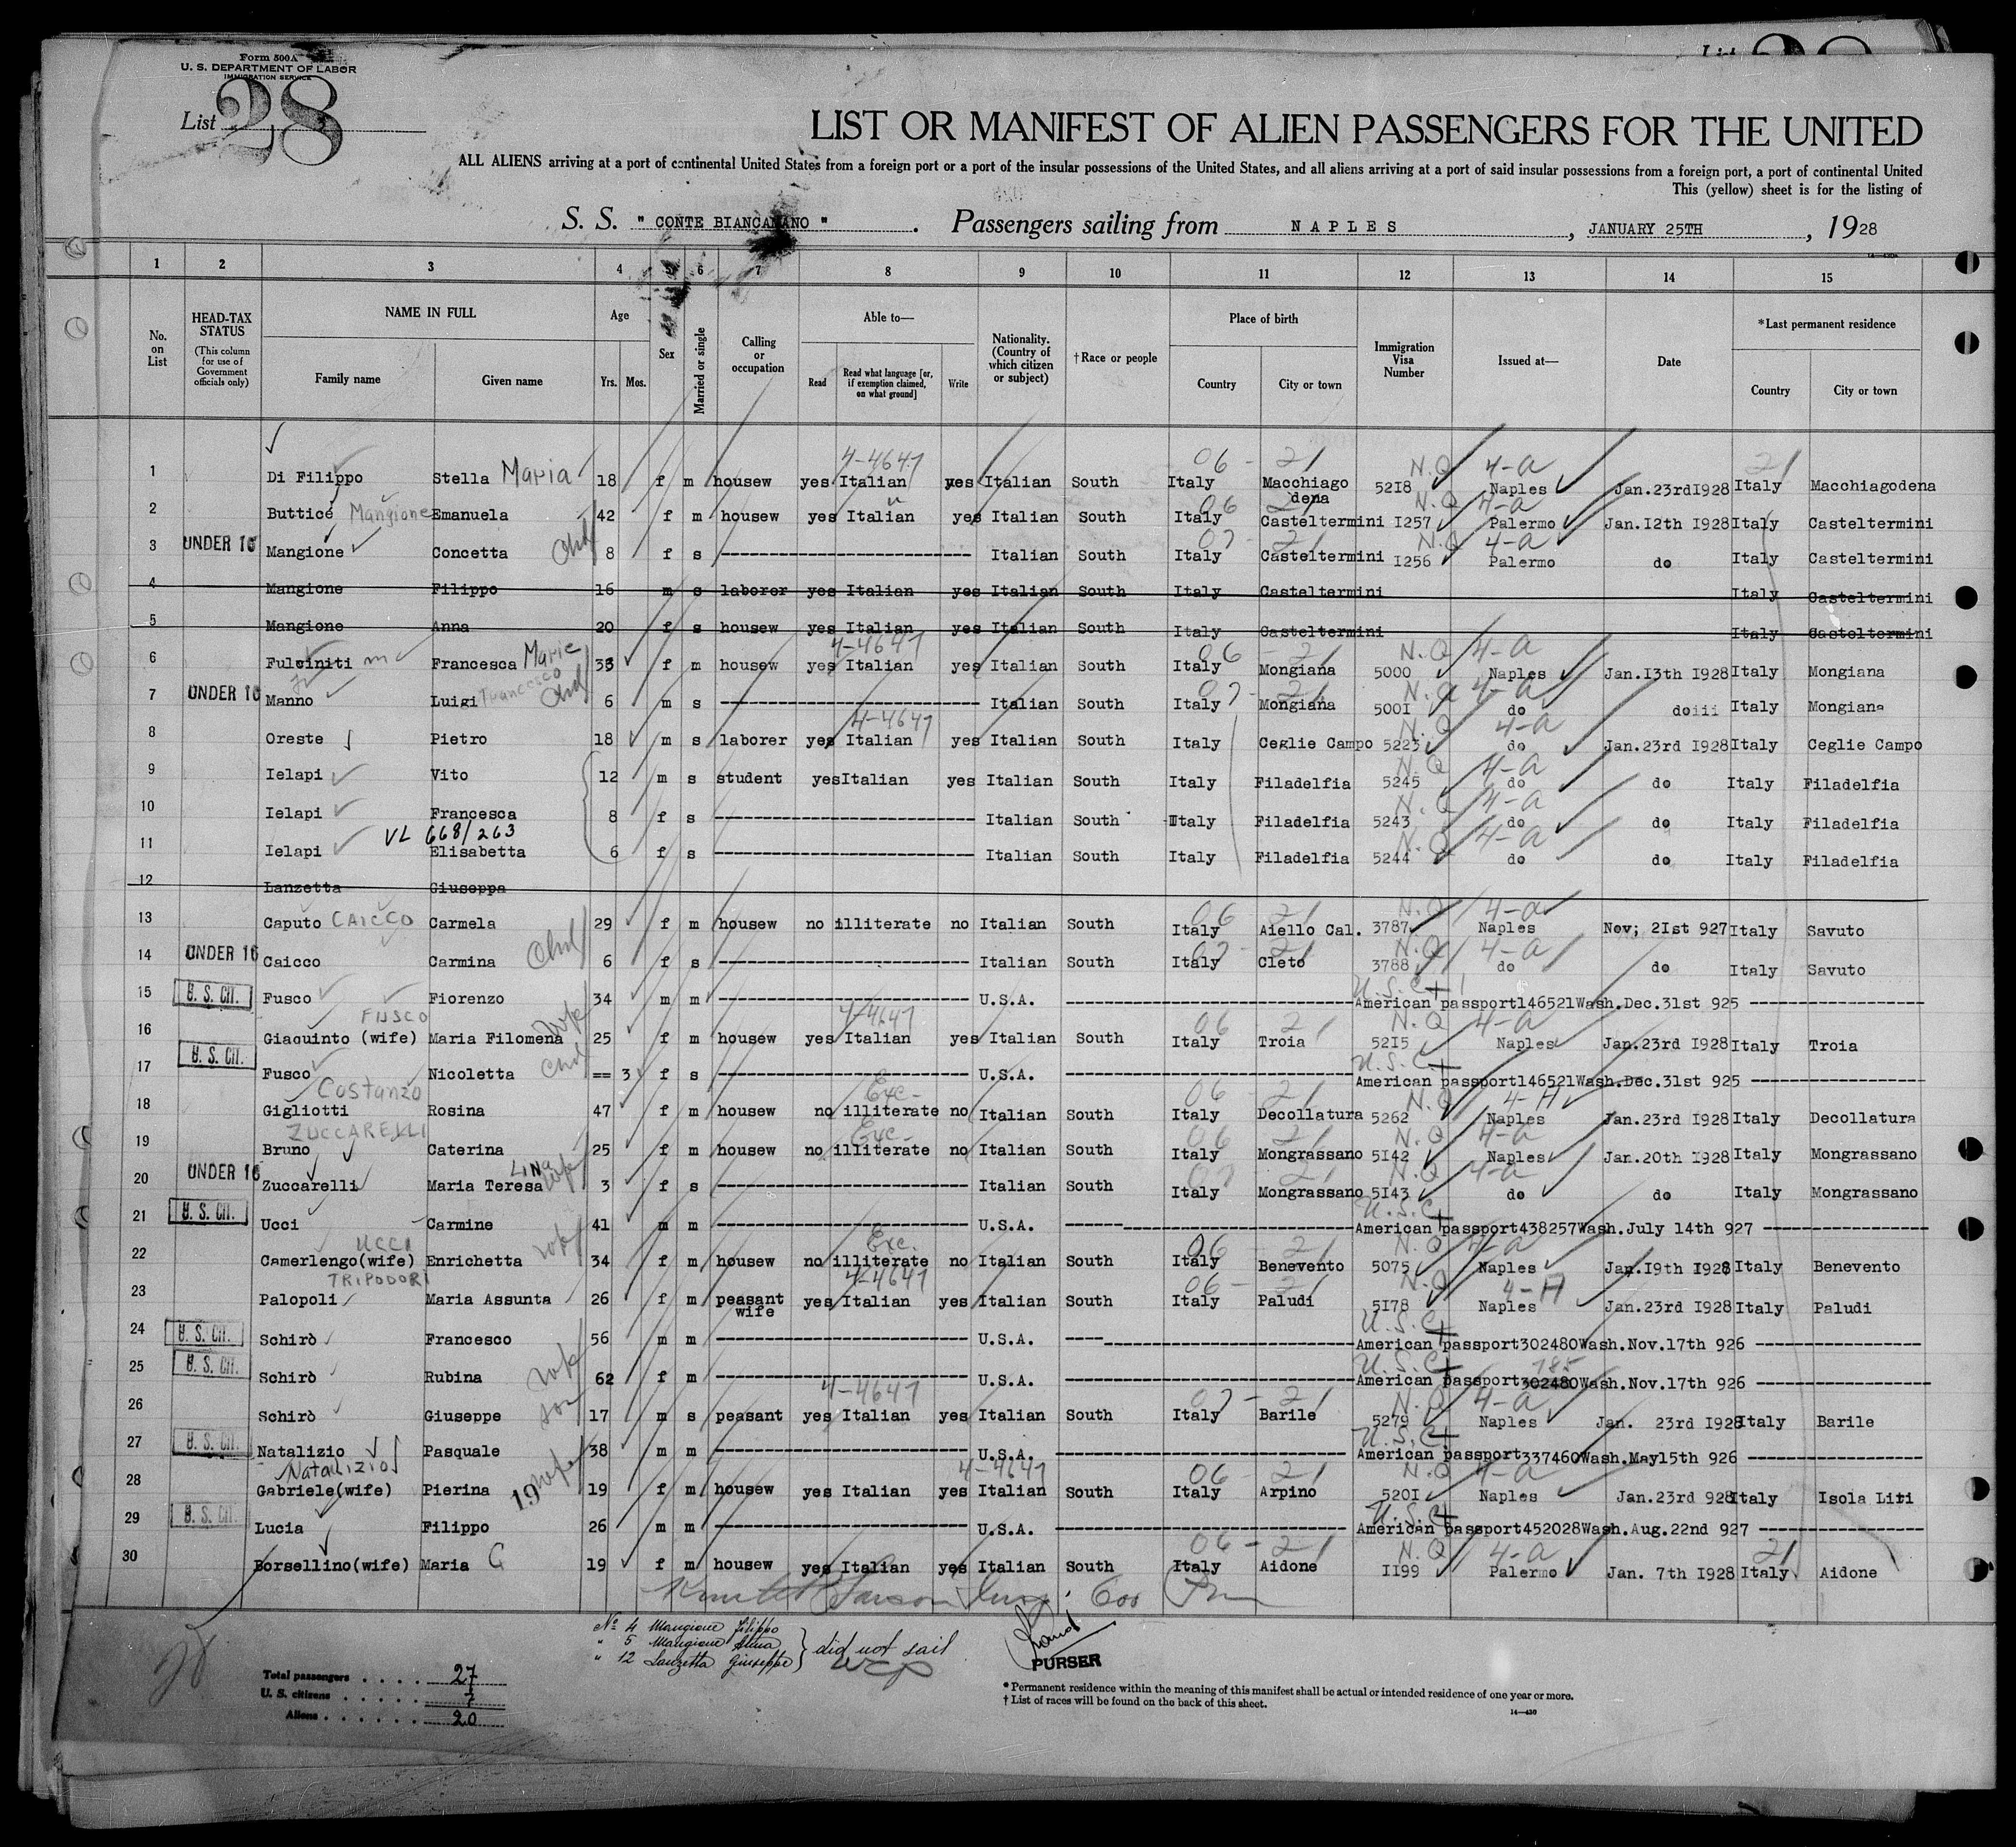 Form 500A
U. S. DEPARTMENT OF LABOR
IMMIGRATION SERVICE
List 28
LIST OR MANIFEST OF ALIEN PASSENGERS FOR THE UNITED
ALL ALIENS arriving at a port of continental United States from a foreign port or a port of the insular possessions of the United States, and all aliens arriving at a port of said insular possessions from a foreign port, a port of continental United
This (yellow) sheet is for the listing of
S. S. " CONTE BIANCAMANO " . Passengers sailing from NAPLES , JANUARY 25TH , 1928
1 2 3 4 5 6 7 8 9 10 11 12 13 14 15
No. on List
HEAD-TAX STATUS (This column for use of Government officials only)
NAME IN FULL Family name Given name
Age Yrs. Mos.
Sex
Married or single
Calling or occupation
Able to— Read Read what language [or, if exemption claimed, on what ground] Write
Nationality. (Country of which citizen or subject)
†Race or people
Place of birth Country City or town
Immigration Visa Number
Issued at—
Date
*Last permanent residence Country City or town
1 Di Filippo Stella Maria 18 f m housew yes Italian yes Italian South Italy Macchiago dena 5218 Naples Jan.23rd1928 Italy Macchiagodena
4-4647 06 - 21 N.Q 4-a 21
2 Butticé Mangione Emanuela 42 f m housew yes Italian yes Italian South Italy Casteltermini I257 Palermo Jan.I2th 1928 Italy Casteltermini
06 21 N.Q 4-a
3 UNDER 16 Mangione Concetta Chd 8 f s Italian South Italy Casteltermini I256 Palermo do Italy Casteltermini
07 - 21 N.Q 4-a
4 Mangione Filippo 16 m s laborer yes Italian yes Italian South Italy Casteltermini Italy Casteltermini
5 Mangione Anna 20 f s housew yes Italian yes Italian South Italy Casteltermini Italy Casteltermini
6 Fulciniti Francesca Marie 33 f m housew yes Italian yes Italian South Italy Mongiana 5000 Naples Jan.I3th 1928 Italy Mongiana
4-4647 06 - 21 N.Q 4-a
7 UNDER 16 Manno Luigi Francesco Chd 6 m s Italian South Italy Mongiana 500I do doiii Italy Mongiana
07 - 21 N.Q 4-a
8 Oreste Pietro 18 m s laborer yes Italian yes Italian South Italy Ceglie Campo 5223 do Jan.23rd I928 Italy Ceglie Campo
4-4647 N.Q 4-a
9 Ielapi Vito 12 m s student yesItalian yes Italian South Italy Filadelfia 5245 do do Italy Filadelfia
N.Q 4-a
10 Ielapi Francesca 8 f s Italian South Italy Filadelfia 5243 do do Italy Filadelfia
N.Q 4-a
VL 668/263
11 Ielapi Elisabetta 6 f s Italian South Italy Filadelfia 5244 do do Italy Filadelfia
N.Q 4-a
12 Lanzetta Giuseppa
13 Caputo CAICCO Carmela 29 f m housew no illiterate no Italian South Italy Aiello Cal. 3787 Naples Nov; 2Ist 927 Italy Savuto
06 - 21 N.Q 4-a
14 UNDER 16 Caicco Carmina Chd 6 f s Italian South Italy Cleto 3788 do do Italy Savuto
07 - 21 N.Q 4-a
15 U. S. CIT. Fusco Fiorenzo 34 m m U.S.A. American passport146521Wash.Dec.31st 925
U.S.C
FUSCO
16 Giaquinto (wife) Maria Filomena wife 25 f m housew yes Italian yes Italian South Italy Troia 52I5 Naples Jan.23rd I928 Italy Troia
4-4647 06 21 N.Q 4-a
17 U. S. CIT. Fusco Nicoletta Chd == 3 f s U.S.A. American passport146521Wash.Dec.31st 925
U.S.C
Costanzo
18 Gigliotti Rosina 47 f m housew no illiterate no Italian South Italy Decollatura 5262 Naples Jan.23rd I928 Italy Decollatura
Exc- 06 - 21 N.Q 4-H
ZUCCARELLI
19 Bruno Caterina 25 f m housew no illiterate no Italian South Italy Mongrassano 5I42 Naples Jan.20th I928 Italy Mongrassano
Exc- 06 21 N.Q 4-a
20 UNDER 16 Zuccarelli Maria Teresa LINA 3 f s Italian South Italy Mongrassano 5I43 do do Italy Mongrassano
07 21 N.Q 4-a
21 U. S. CIT. Ucci Carmine 41 m m U.S.A. American passport438257Wash.July 14th 927
U.S.C
UCCI
22 Camerlengo(wife) Enrichetta wife 34 f m housew no illiterate no Italian South Italy Benevento 5075 Naples Jan.I9th I928 Italy Benevento
Exc. 06 - 21 N.Q 4-a
TRIPODORI
23 Palopoli Maria Assunta 26 f m peasant wife yes Italian yes Italian South Italy Paludi 5I78 Naples Jan.23rd I928 Italy Paludi
4-4647 06 - 21 N.Q 4-H
24 U. S. CIT. Schirò Francesco 56 m m U.S.A. American passport302480Wash.Nov.17th 926
U.S.C
25 U. S. CIT. Schirò Rubina wife 62 f m U.S.A. American passport302480Wash.Nov.17th 926
U.S.C 785
26 Schirò Giuseppe son 17 m s peasant yes Italian yes Italian South Italy Barile 5279 Naples Jan. 23rd I928 Italy Barile
4-4647 07 - 21 N.Q 4-a
27 U. S. CIT. Natalizio Pasquale 38 m m U.S.A. American passport337460Wash.May15th 926
U.S.C
Natalizio
28 Gabriele(wife) Pierina 19 wife 19 f m housew yes Italian yes Italian South Italy Arpino 520I Naples Jan.23rd 928 Italy Isola Liri
4-4647 06 21 N.Q 4-a
29 U. S. CIT. Lucia Filippo 26 m m U.S.A. American passport452028Wash.Aug.22nd 927
U.S.C
30 Borsellino(wife) Maria C 19 f m housew yes Italian yes Italian South Italy Aidone II99 Palermo Jan. 7th I928 Italy Aidone
06 - 21 N.Q 4-a 21
No 4 Mangione Filippo
" 5 Mangione Anna
" 12 Lanzetta Giuseppe } did not sail
PURSER
28
Total passengers . . . . 27
U. S. citizens . . . . . 7
Aliens . . . . . . 20
* Permanent residence within the meaning of this manifest shall be actual or intended residence of one year or more.
† List of races will be found on the back of this sheet.
14—430